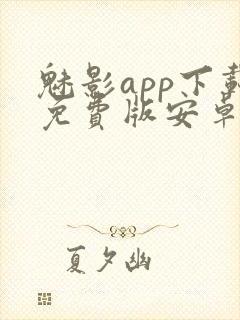 魅影app下载
免費版安卓
夏夕幽